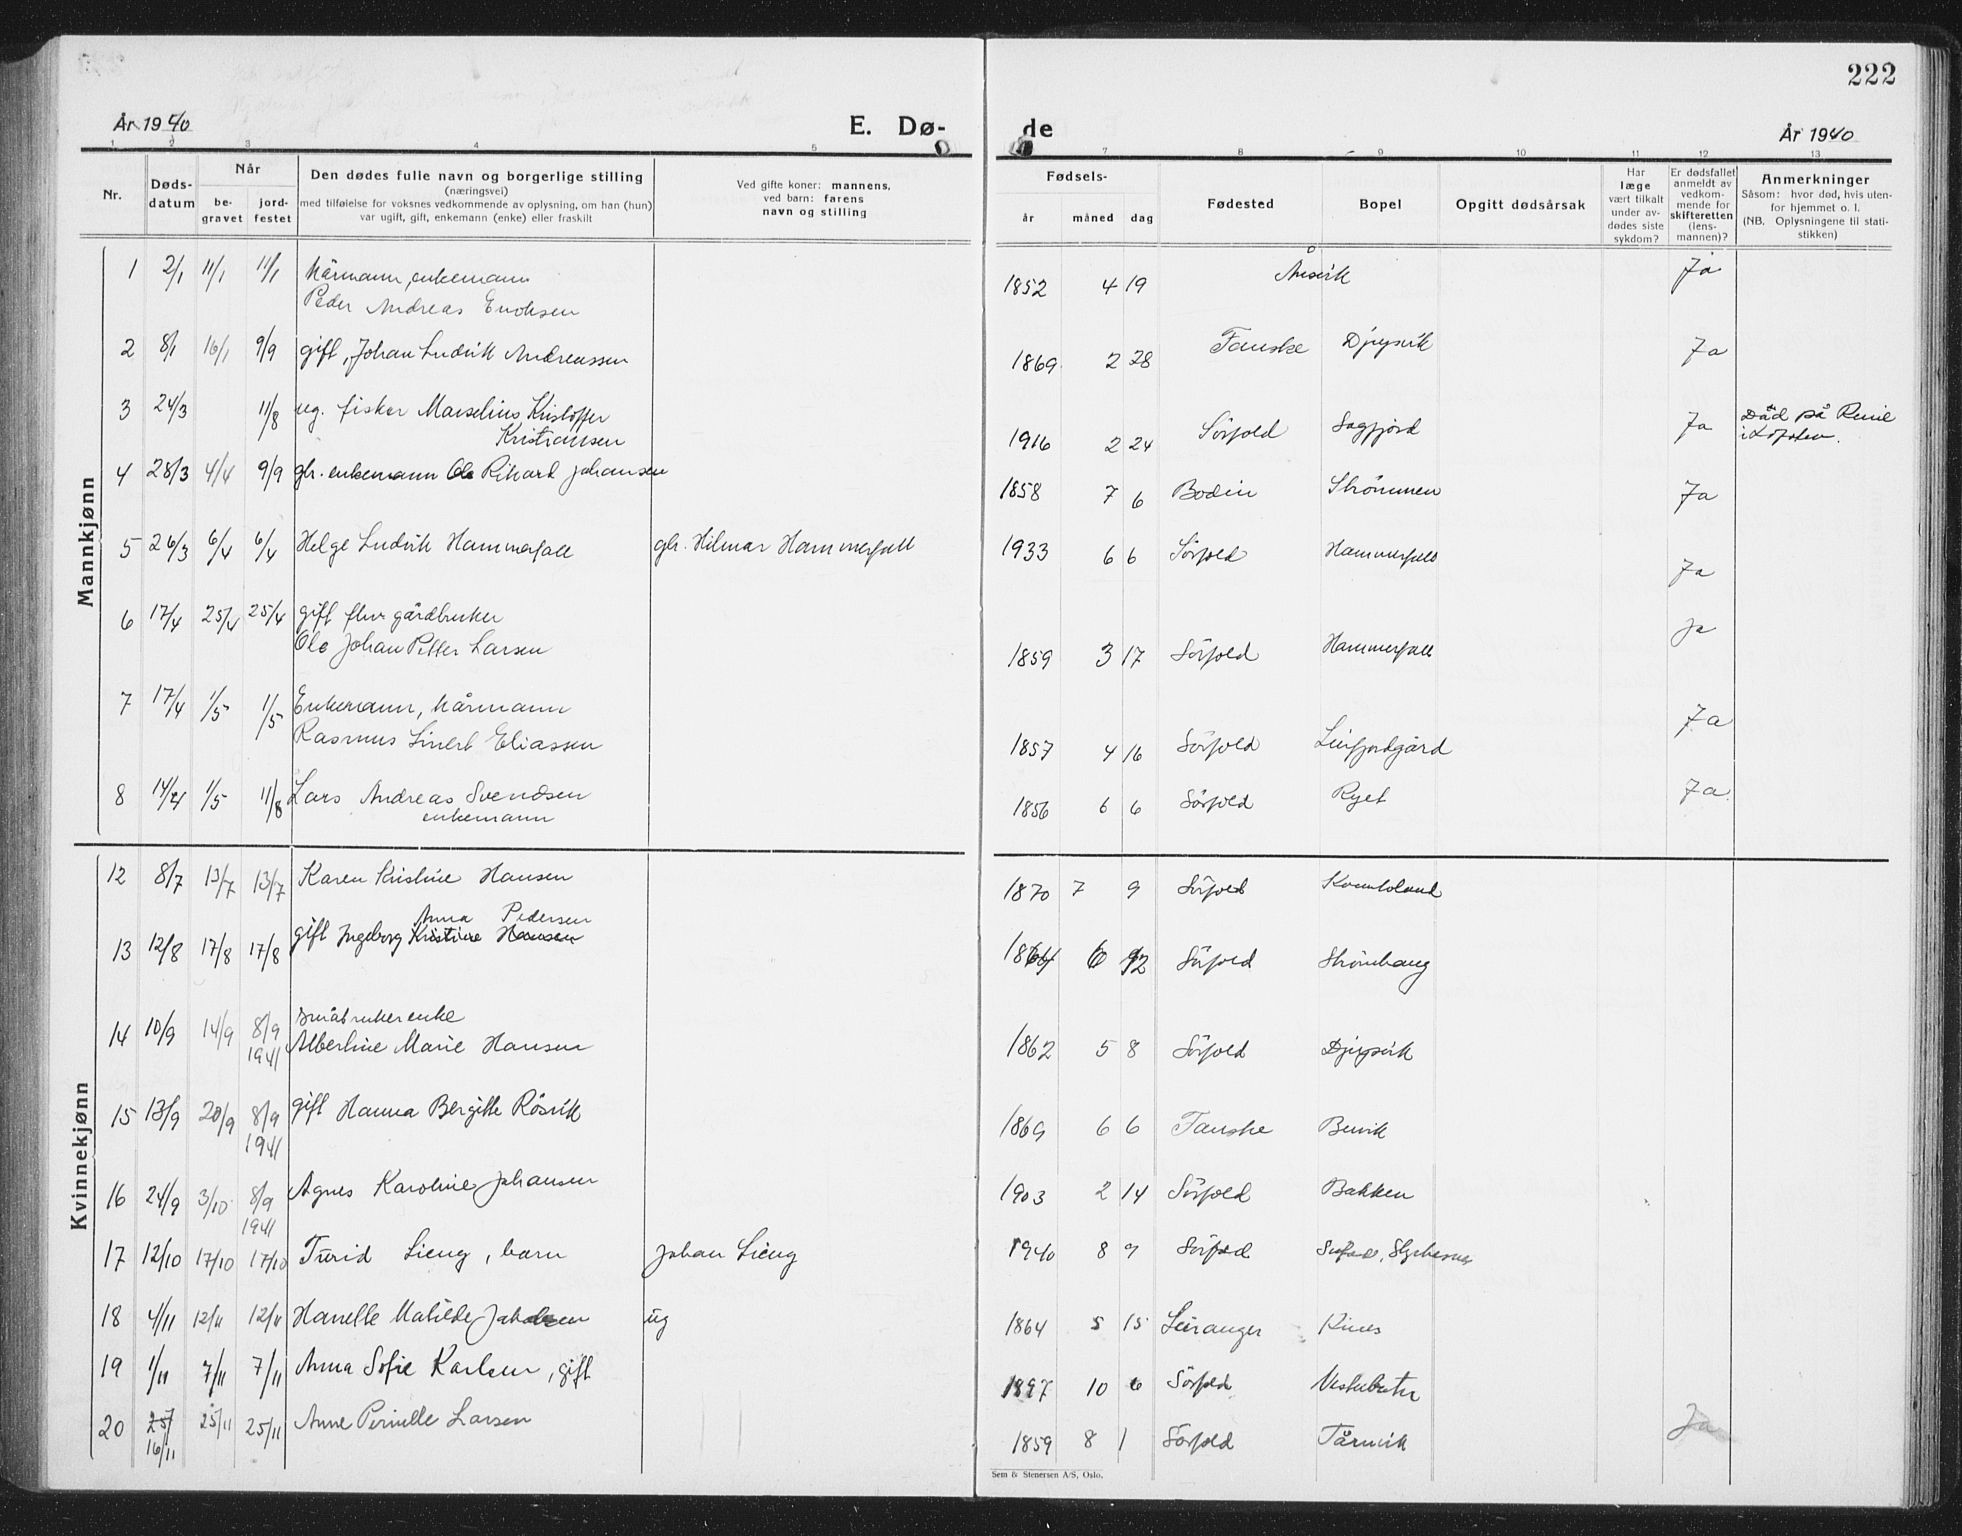 222
År 1940
E. Dø-
de
År 1940
1 2 3 4 5 7 8 9 10 11 12 13
Nr.
Døds-
datum
Når
be-
gravet
jord-
festet
Den dødes fulle navn og borgerlige stilling
(næringsvei)
med tilføielse for voksnes vedkommende av oplysning, om han (hun)
var ugift, gift, enkemann (enke) eller fraskilt
Ved gifte koner: mannens,
ved barn: farens
navn og stilling
Fødsels-
år måned dag
Fødested
Bopel
Opgitt dødsårsak
Har
læge
vært tilkalt
under av-
dødes siste
sykdom?
Er dødsfallet
anmeldt av
vedkom-
mende for
skifteretten
(lens-
mannen)?
Anmerkninger
Såsom: hvor død, hvis uten-
for hjemmet o. l.
(NB. Oplysningene til stati-
stikken)
Mannkjønn
1 2/1 11/1 11/1 kårmann, enkemann
Peder Andreas Enoksen 1852 4 19 Ånsvik Ja
2 8/1 16/1 9/9 gift, Johan Ludvik Andreassen 1869 2 28 Fauske Djupvik Ja
3 24/3 11/8 ug. fisker Marselius Kristoffer
Kristiansen 1916 2 24 Sörfold Sagfjord Ja Död på Reine
i Lofoten.
4 28/3 4/4 9/9 gbr. enkemann Ole Rikard Johansen 1858 7 6 Bodin Strömmen Ja
5 26/3 6/4 6/4 Helge Ludvik Hammerfall gbr. Hilmar Hammerfall 1933 6 6 Sörfold Hammerfall Ja
6 17/4 25/4 25/4 gift fhv. gårdbruker
Ole Johan Petter Larsen 1859 3 17 Sörfold Hammerfall Ja
7 17/4 1/5 1/5 Enkemann, kårmann
Rasmus Sivert Eliassen 1857 4 16 Sörfold Leirfjordgård Ja
8 14/4 1/5 11/8 Lars Andreas Svendsen
enkemann 1856 6 6 Sörfold Ryet Ja
Kvinnekjønn
12 8/7 13/7 13/7 Karen Kristine Hansen 1870 7 9 Sörfold Kvantoland
Anna Pedersen
13 12/8 17/8 17/8 gift Ingeborg Kristine Hansen 1864 6 12 Sörfold Strömhaug
14 10/9 14/9 8/9 1941 småbrukerenke
Albertine Marie Hansen 1862 5 8 Sörfold Djupvik
15 13/9 20/9 8/9 1941 gift Hanna Bergitte Rösvik 1869 6 6 Fauske
16 24/9 3/10 8/9 1941 Agnes Karoline Johansen 1903 2 14 Sörfold Bakken
17 12/10 17/10 17/10 Turid Lieng, barn Johan Lieng 1940 8 9 Sörfold
18 4/11 12/11 12/11 Hanelle Matilde Jakobsen ug 1864 5 15 Leiranger Kines
19 1/11 7/11 7/11 Anna Sofie Karlsen, gift 1897 10 6 Sörfold
20 25/ 16/11 25/11 25/11 Anne Pernille Larsen 1859 8 1 Sörfold Tårnvik Ja
Sem & Stenersen A/S, Oslo.